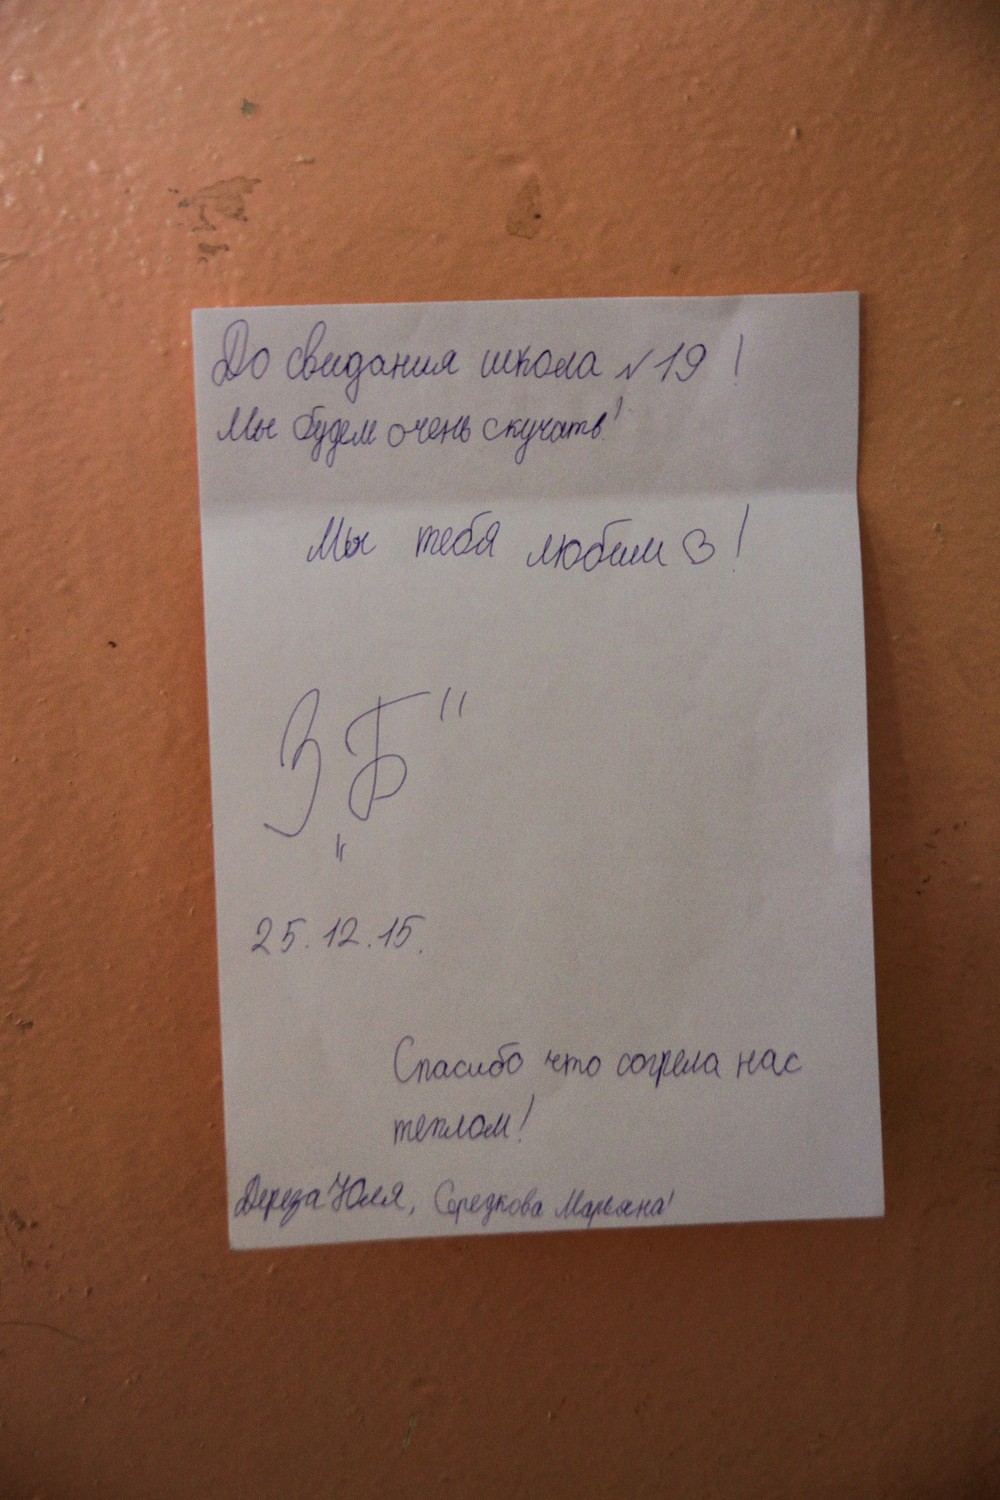 До свидания школа №19!
Мы будем очень скучать!
Мы тебя любим ♡!
3 „Б"
25.12.15.
Спасибо что согрела нас
теплом!
Дереза Юля, Середкова Марьяна